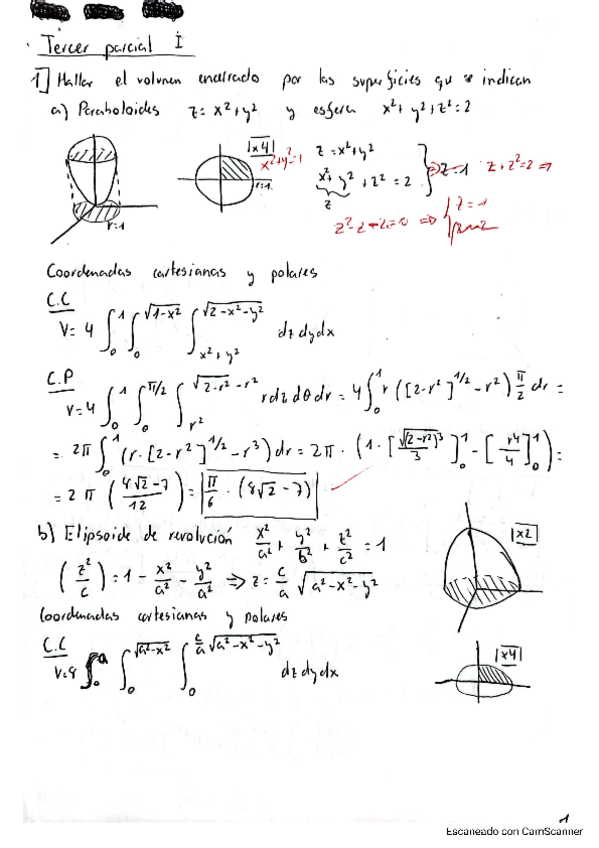 Tercer parcial I
1] Hallar el volumen encerrado por las superficies que se indican
a) Paraboloides z = x²+y² y esfera x²+y²+z²=2
|x4|
x²+y²=1
r=1
r=1
z = x²+y²
x²+y²+z²=2
z
z=1
z+z²=2 ⇒
z²-z+2=0 ⇒ { z=1
Coordenadas cartesianas y polares
C.C
V= 4 ∫₀¹ ∫₀^√(1-x²) ∫_(x²+y²)^√(2-x²-y²) dz dy dx
C.P
V=4 ∫₀¹ ∫₀^(π/2) ∫_(r²)^(√(2-r²) - r²) r dz dθ dr = 4 ∫₀¹ r ([2-r²]^(1/2) - r²) π/2 dr =
= 2π ∫₀¹ (r·[2-r²]^(1/2) - r³) dr = 2π · (1·[√(2-r²)³/3]₀¹ - [r⁴/4]₀¹) =
= 2π (8√2-7/12) = |π/6 · (8√2-7)|
b) Elipsoide de revolución x²/a² + y²/b² + z²/c² = 1
|x2|
(z²/c) = 1 - x²/a² - y²/a² ⇒ z = c/a √(a²-x²-y²)
Coordenadas cartesianas y polares
C.C
V=8 ∫₀^a ∫₀^√(a²-x²) ∫₀^(c/a √(a²-x²-y²)) dz dy dx
|x4|
1
Escaneado con CamScanner